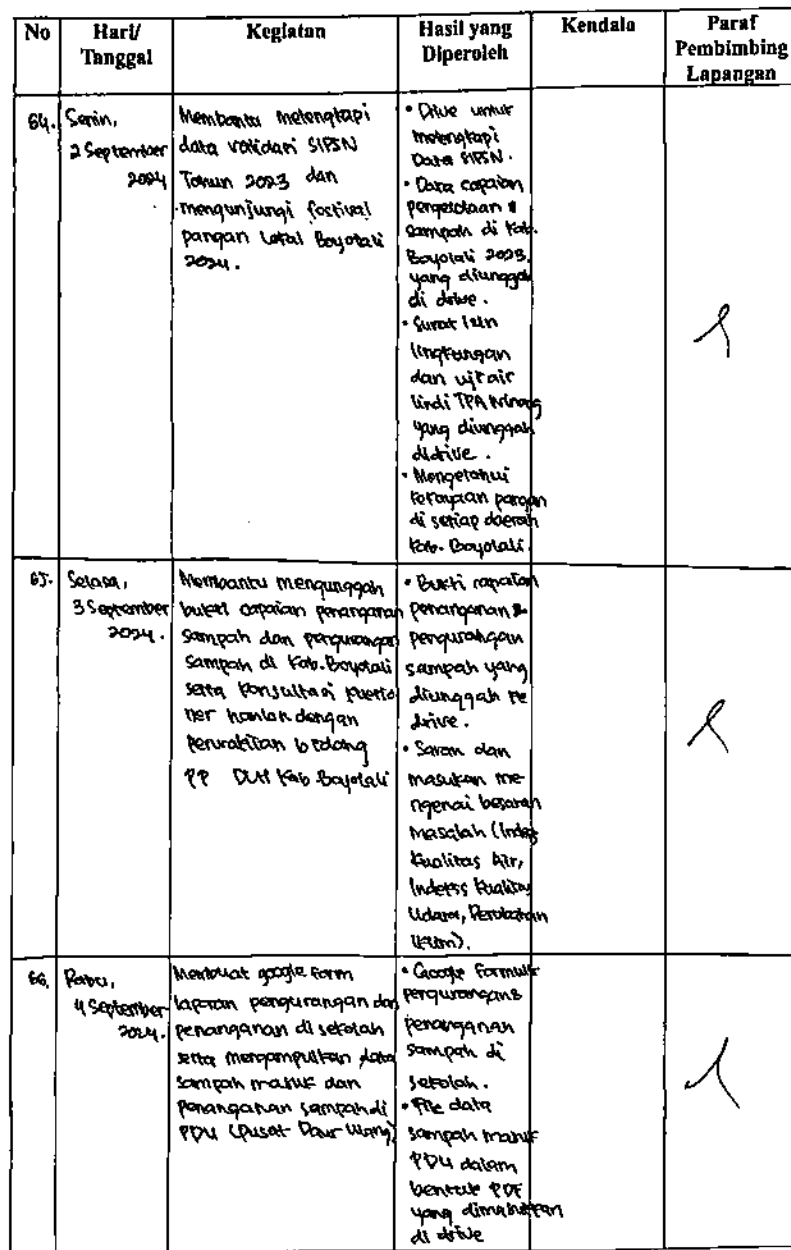 No
Hari/
Tanggal
Kegiatan
Hasil yang
Diperoleh
Kendala
Paraf
Pembimbing
Lapangan
64.
Senin,
2 September
2024
Membantu melengkapi
data validasi SIPSN
Tahun 2023 dan
mengunjungi festival
pangan lokal Boyolali
2024.
• Drive untuk
melengkapi
Data SIPSN.
• Data capaian
pengelolaan
sampah di Kab.
Boyolali 2023,
yang diunggah
di drive.
• Surat izin
lingkungan
dan uji air
lindi TPA Winong
yang diunggah
didrive.
• Mengetahui
kekayaan pangan
di setiap daerah
Kab. Boyolali.
65.
Selasa,
3 September
2024.
Membantu mengunggah
bukti capaian penanganan
sampah dan pengurangan
sampah di Kab. Boyolali
serta konsultasi kuesio
ner hanlon dengan
perwakilan bidang
PP DLH Kab Boyolali
• Bukti capaian
penanganan &
pengurangan
sampah yang
diunggah ke
drive.
• Saran dan
masukan me
ngenai besaran
masalah (Indeks
Kualitas Air,
Indeks Kualitas
Udara, Perubahan
Iklim).
66.
Rabu,
4 September
2024.
Membuat google form
laporan pengurangan dan
penanganan di sekolah
serta mengumpulkan data
sampah masuk dan
penanganan sampah di
PDU (Pusat Daur Ulang)
• Google Formulir
pengurangan &
penanganan
sampah di
sekolah.
• File data
sampah masuk
PDU dalam
bentuk PDF
yang dimasukkan
di drive